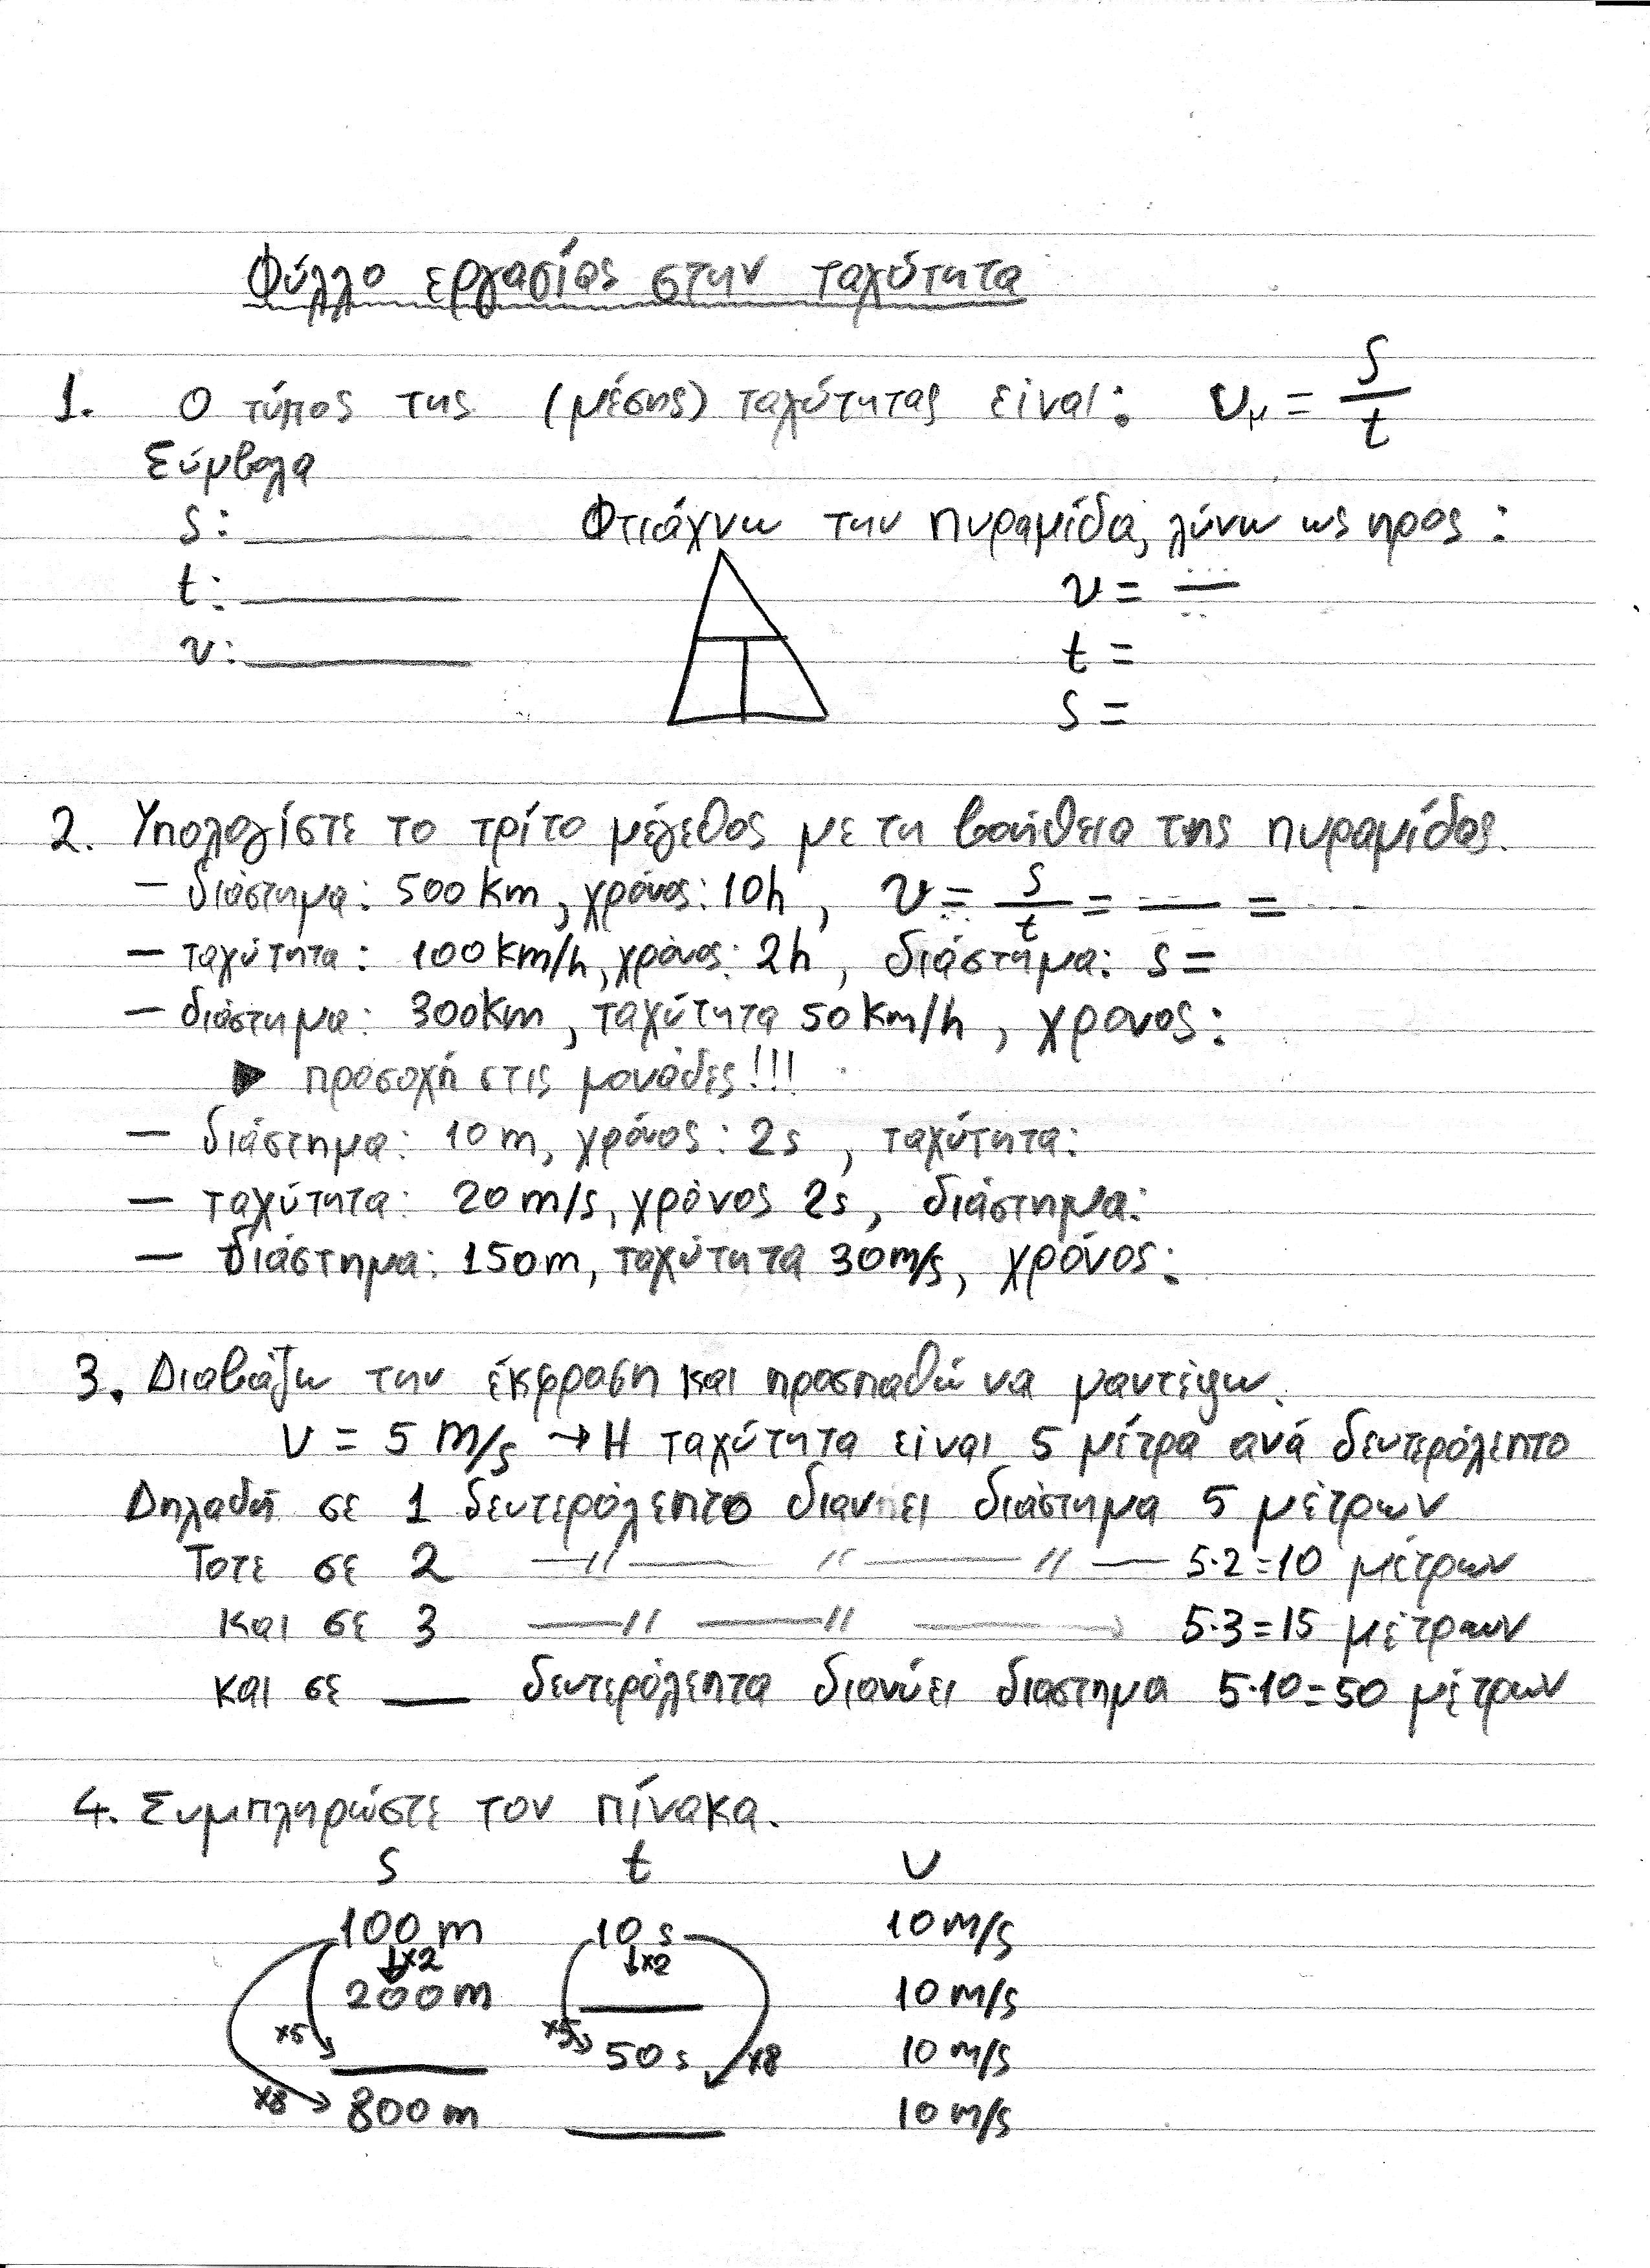 Φύλλο εργασίας στην ταχύτητα
1. Ο τύπος της (μέσης) ταχύτητας είναι: υμ = s/t
Σύμβολα
s: ______ Φτιάχνω την πυραμίδα, λύνω ως προς:
t: ______ υ = —
υ: ______ t =
s =
2. Υπολογίστε το τρίτο μέγεθος με τη βοήθεια της πυραμίδας.
– διάστημα: 500 km, χρόνος: 10h, υ = s/t = — = ...
– ταχύτητα: 100 km/h, χρόνος: 2h, διάστημα: s =
– διάστημα: 300km, ταχύτητα 50 km/h, χρονος:
▶ προσοχή στις μονάδες!!!
– διάστημα: 10 m, χρόνος: 2s, ταχύτητα:
– ταχύτητα: 20 m/s, χρόνος 2s, διάστημα:
– διάστημα: 150m, ταχύτητα 30m/s, χρόνος:
3. Διαβάζω την έκφραση και προσπαθώ να μαντέψω.
υ = 5 m/s → Η ταχύτητα είναι 5 μέτρα ανά δευτερόλεπτο
Δηλαδή σε 1 δευτερόλεπτο διανύει διάστημα 5 μέτρων
Τοτε σε 2 —〃— 〃 —〃— 5·2=10 μέτρων
και σε 3 —〃 —〃 — 5·3=15 μέτρων
και σε ___ δευτερόλεπτα διανύει διαστημα 5·10=50 μέτρων
4. Συμπληρώστε τον πίνακα.
s t υ
100 m 10 s 10 m/s
x2 x2
200 m ____ 10 m/s
x5 x5
____ 50 s x8 10 m/s
x8 800 m ____ 10 m/s